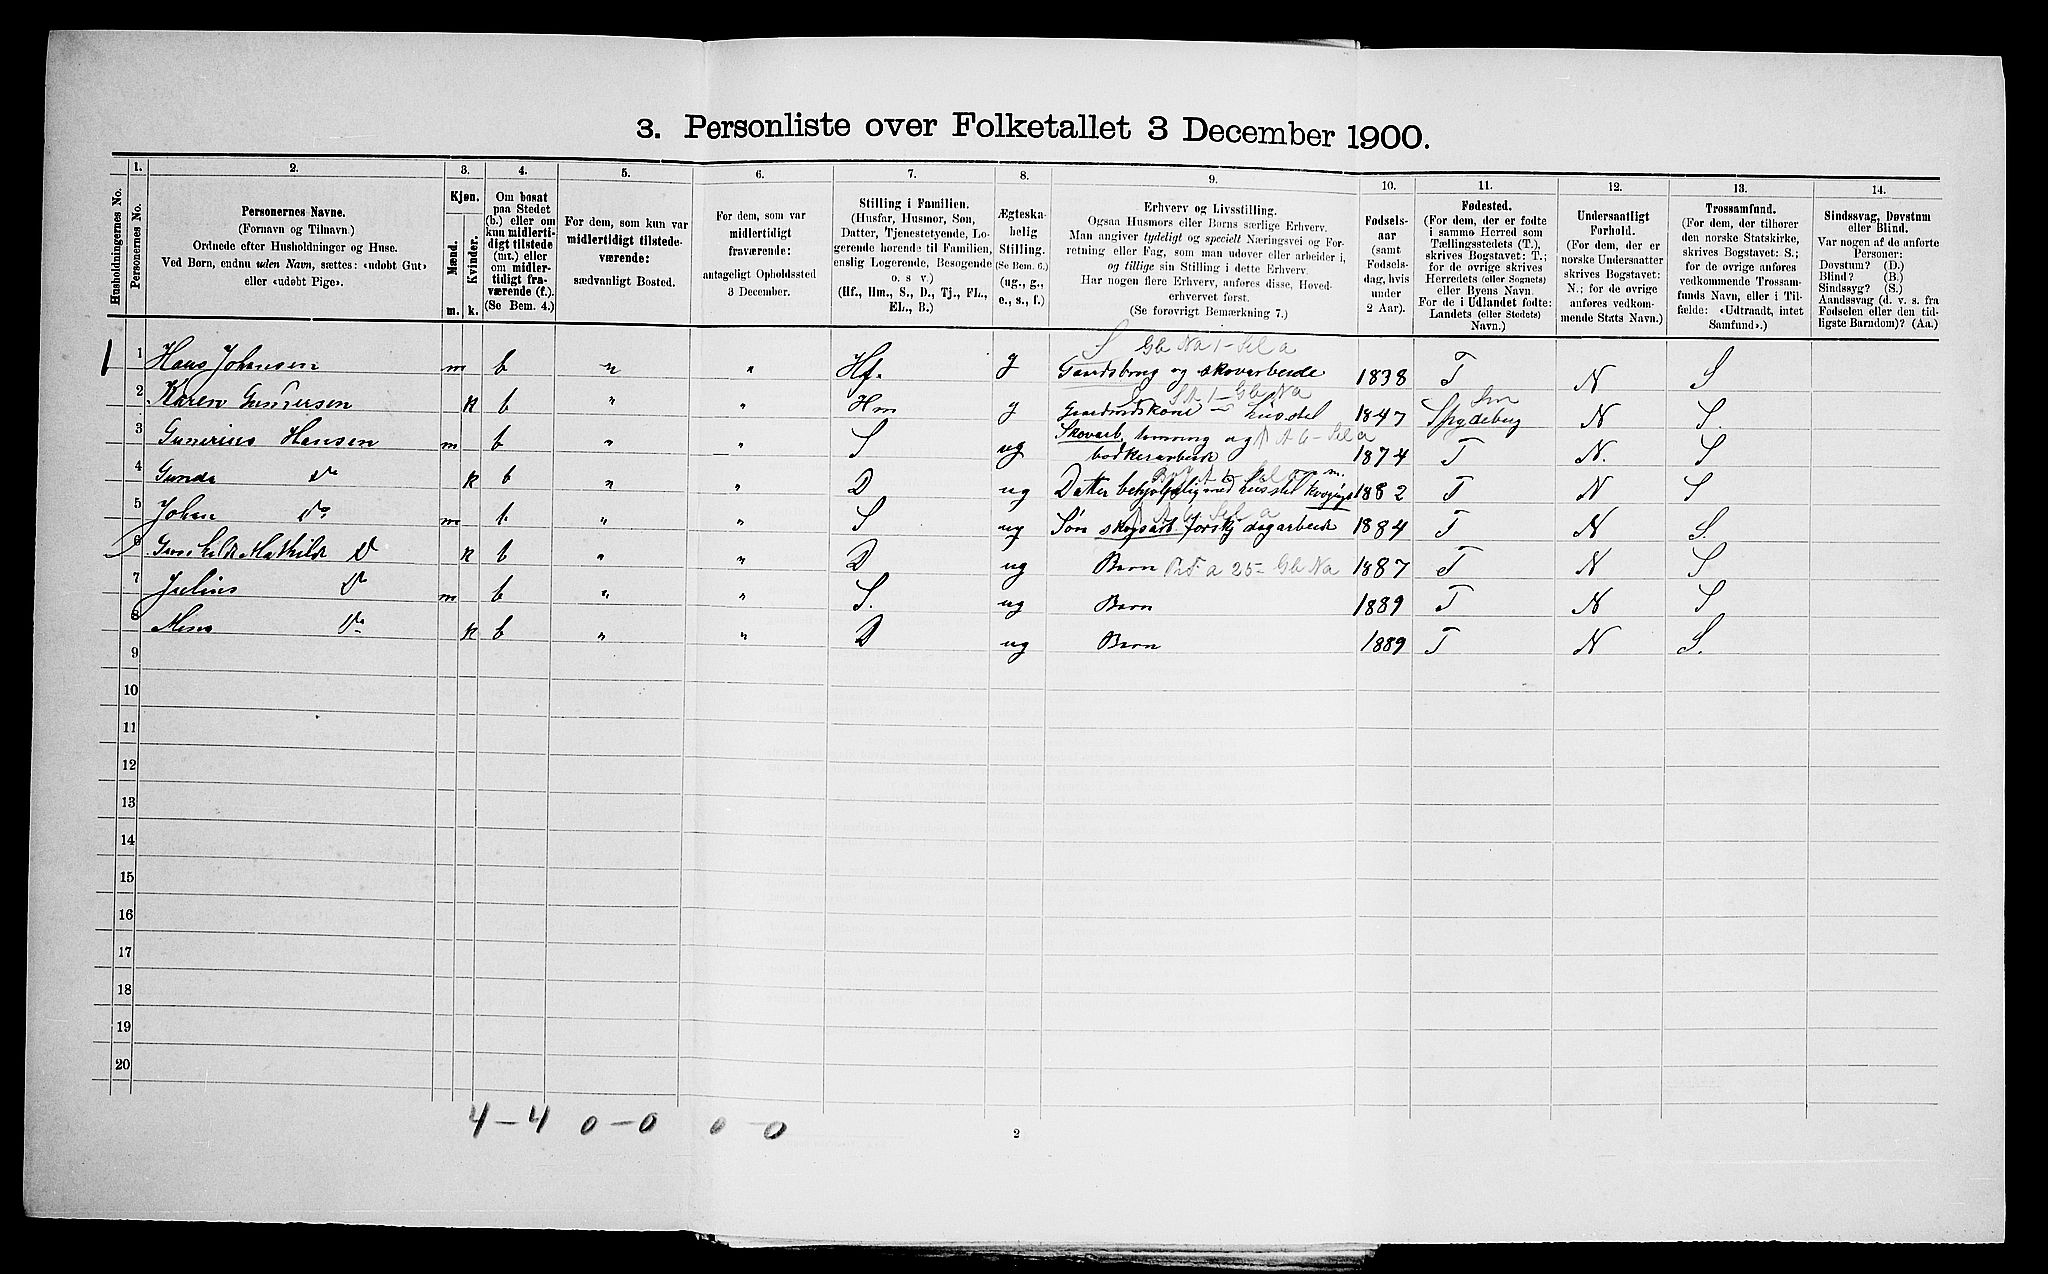 3. Personliste over Folketallet 3 December 1900.
Husholdningernes No.
1. Personernes No.
2. Personernes Navne.
(Fornavn og Tilnavn.)
Ordnede efter Husholdninger og Huse.
Ved Børn, endnu uden Navn, sættes: «udøbt Gut»
eller «udøbt Pige».
3. Kjøn.
Mænd. Kvinder.
m. k.
4. Om bosat
paa Stedet
(b.) eller om
kun midlertidigt
tilstede
(mt.) eller
om midlertidigt
fraværende
(f.).
(Se Bem. 4.)
5. For dem, som kun var
midlertidigt tilstedeværende:
sædvanligt Bosted.
6. For dem, som var
midlertidigt
fraværende:
antageligt Opholdssted
3 December.
7. Stilling i Familien.
(Husfar, Husmor, Søn,
Datter, Tjenestetyende, Logerende
hørende til Familien,
enslig Logerende, Besøgende
o. s. v.)
(Hf., Hm., S., D., Tj., FL.,
EL., B.)
8. Ægteskabelig
Stilling.
(Se Bem. 6.)
(ug., g.,
e., s., f.)
9. Erhverv og Livsstilling.
Ogsaa Husmors eller Børns særlige Erhverv.
Man angiver tydeligt og specielt Næringsvei og Forretning
eller Fag, som man udøver eller arbeider i,
og tillige sin Stilling i dette Erhverv.
Har nogen flere Erhverv, anføres disse, Hovederhvervet
først.
(Se forøvrigt Bemærkning 7.)
10. Fødselsaar
(samt
Fødselsdag,
hvis
under
2 Aar).
11. Fødested.
(For dem, der er fødte
i samme Herred som
Tællingsstedets (T.),
skrives Bogstavet: T.;
for de øvrige skrives
Herredets (eller Sognets)
eller Byens Navn.
For de i Udlandet fødte:
Landets (eller Stedets)
Navn.)
12. Undersaatligt
Forhold.
(For dem, der er
norske Undersaatter
skrives Bogstavet:
N.; for de øvrige
anføres vedkommende
Stats Navn.)
13. Trossamfund.
(For dem, der tilhører
den norske Statskirke,
skrives Bogstavet: S.;
for de øvrige anføres
vedkommende Trossamfunds
Navn, eller i Tilfælde:
«Udtraadt, intet
Samfund».)
14. Sindssvag, Døvstum
eller Blind.
Var nogen af de anførte
Personer:
Døvstum? (D.)
Blind? (B.)
Sindssyg? (S.)
Aandssvag (d. v. s. fra
Fødselen eller den tidligste
Barndom)? (Aa.)
S Gb Na 1 - Sel a
1 1 Hans Johansen m b " " Hf. g og skovarbeide 1838 T N S
2 Karen k b " " Hm g husstel 1847 Spydeberg N S.
3 Gunerius Hansen m b " " S ug Skovarb. tømring og bødkerarbeide 1874 T N. S
4 Gunda Do k b " " D ug Datter behjælpelig med husstel 1882 T N S
5 Johan Do m b " " S ug Søn skogsarb. forskj dagarbeide 1884 T N S.
6 Gunhilde Mathilde D k b " " D ug Barn 1887 T N S
7 Julius Do m b " " S. ug Barn 1889 T N S
8 Mina Do k b " " D ug Barn 1889 T N S.
9
10
11
12
13
14
15
16
17
18
19
20
4-4 0-0 0-0
2